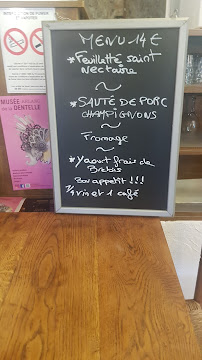 MENU 14€
*Feuilleté saint
Nectaire
~
*SAUTÉ DE PORC
CHAMPIGNONS
~
Fromage
~
*Yaourt frais de
Brebis
Bon appetit !!!
1/4 vin et 1 café
MUSÉE
DENTELLE